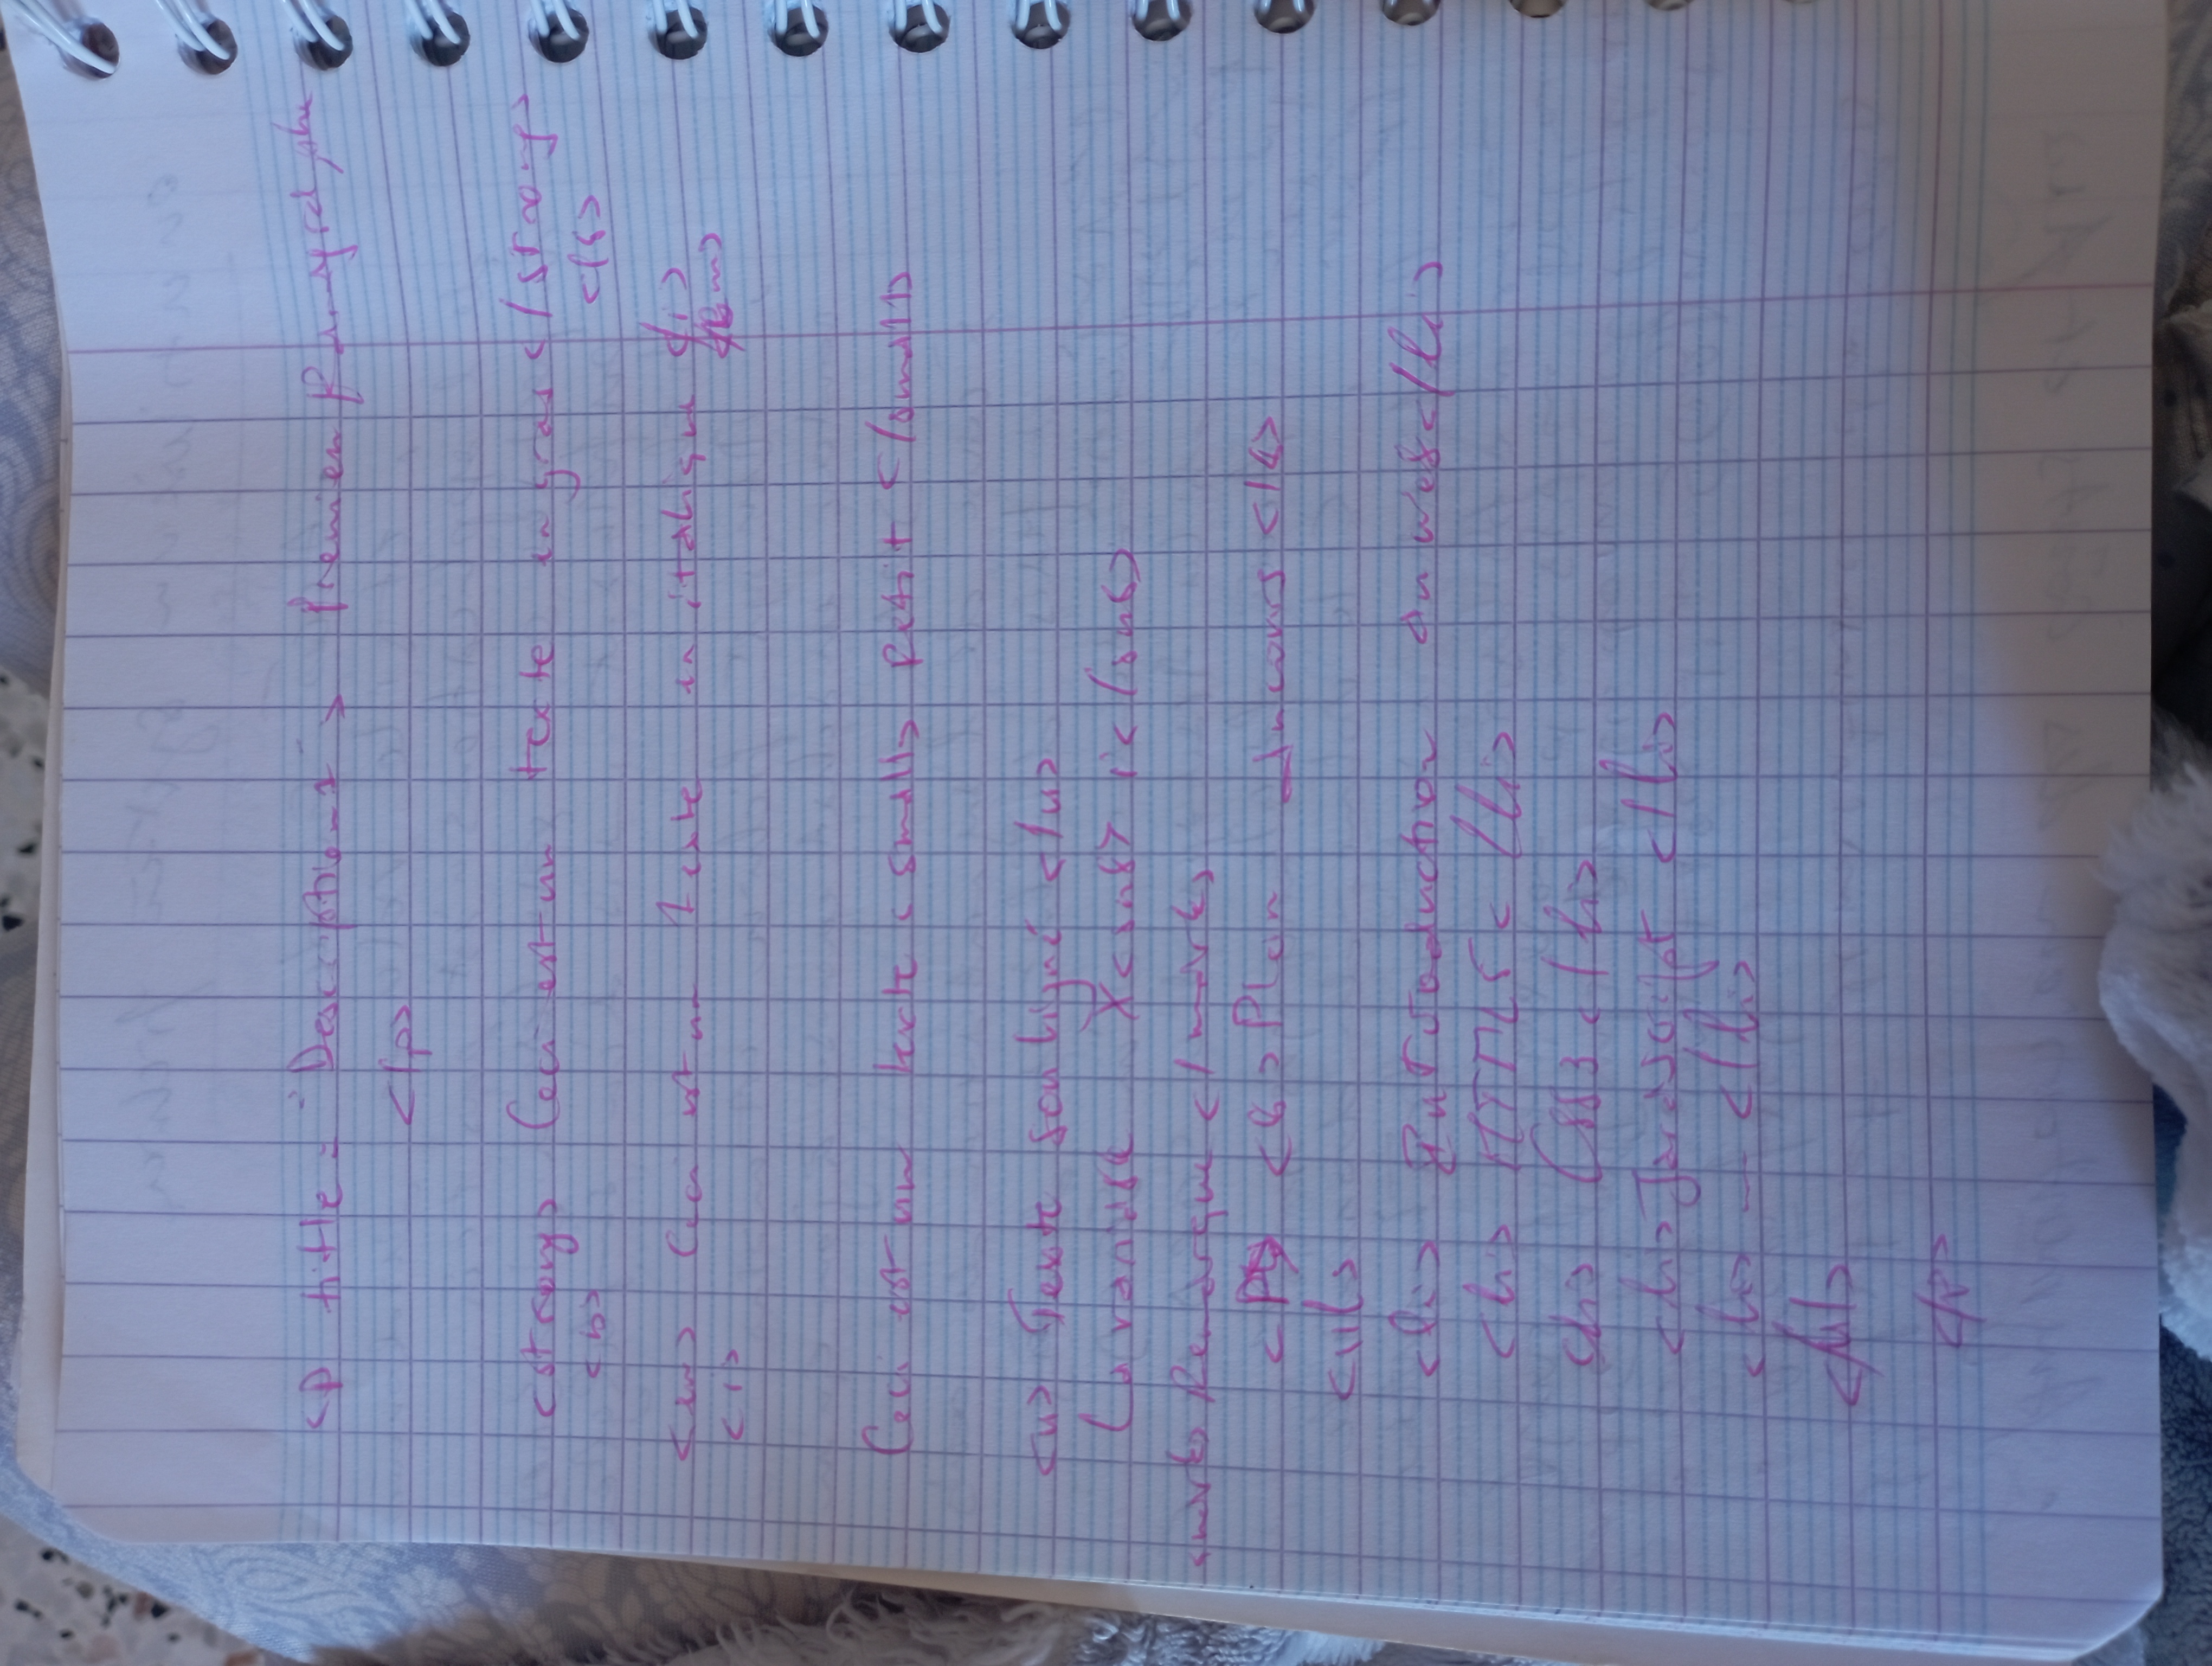 <p title = "Description 1"> Premier Paragraphe
</p>
<strong> Ceci est un texte en gras </strong>
<b> </b>
<em> Ceci est un texte en italique </i>
<i> </em>
Ceci est un texte <small> Petit </small>
<u> Texte souligné </u>
La variable X<sub> i</sub>
<mark> Remarque </mark>
<P> <b> Plan du cours </b>
<ul>
<li> Introduction du web </li>
<li> HTML5 </li>
<li> CSS3 </li>
<li> JavaScript </li>
<li> — </li>
</ul>
</p>